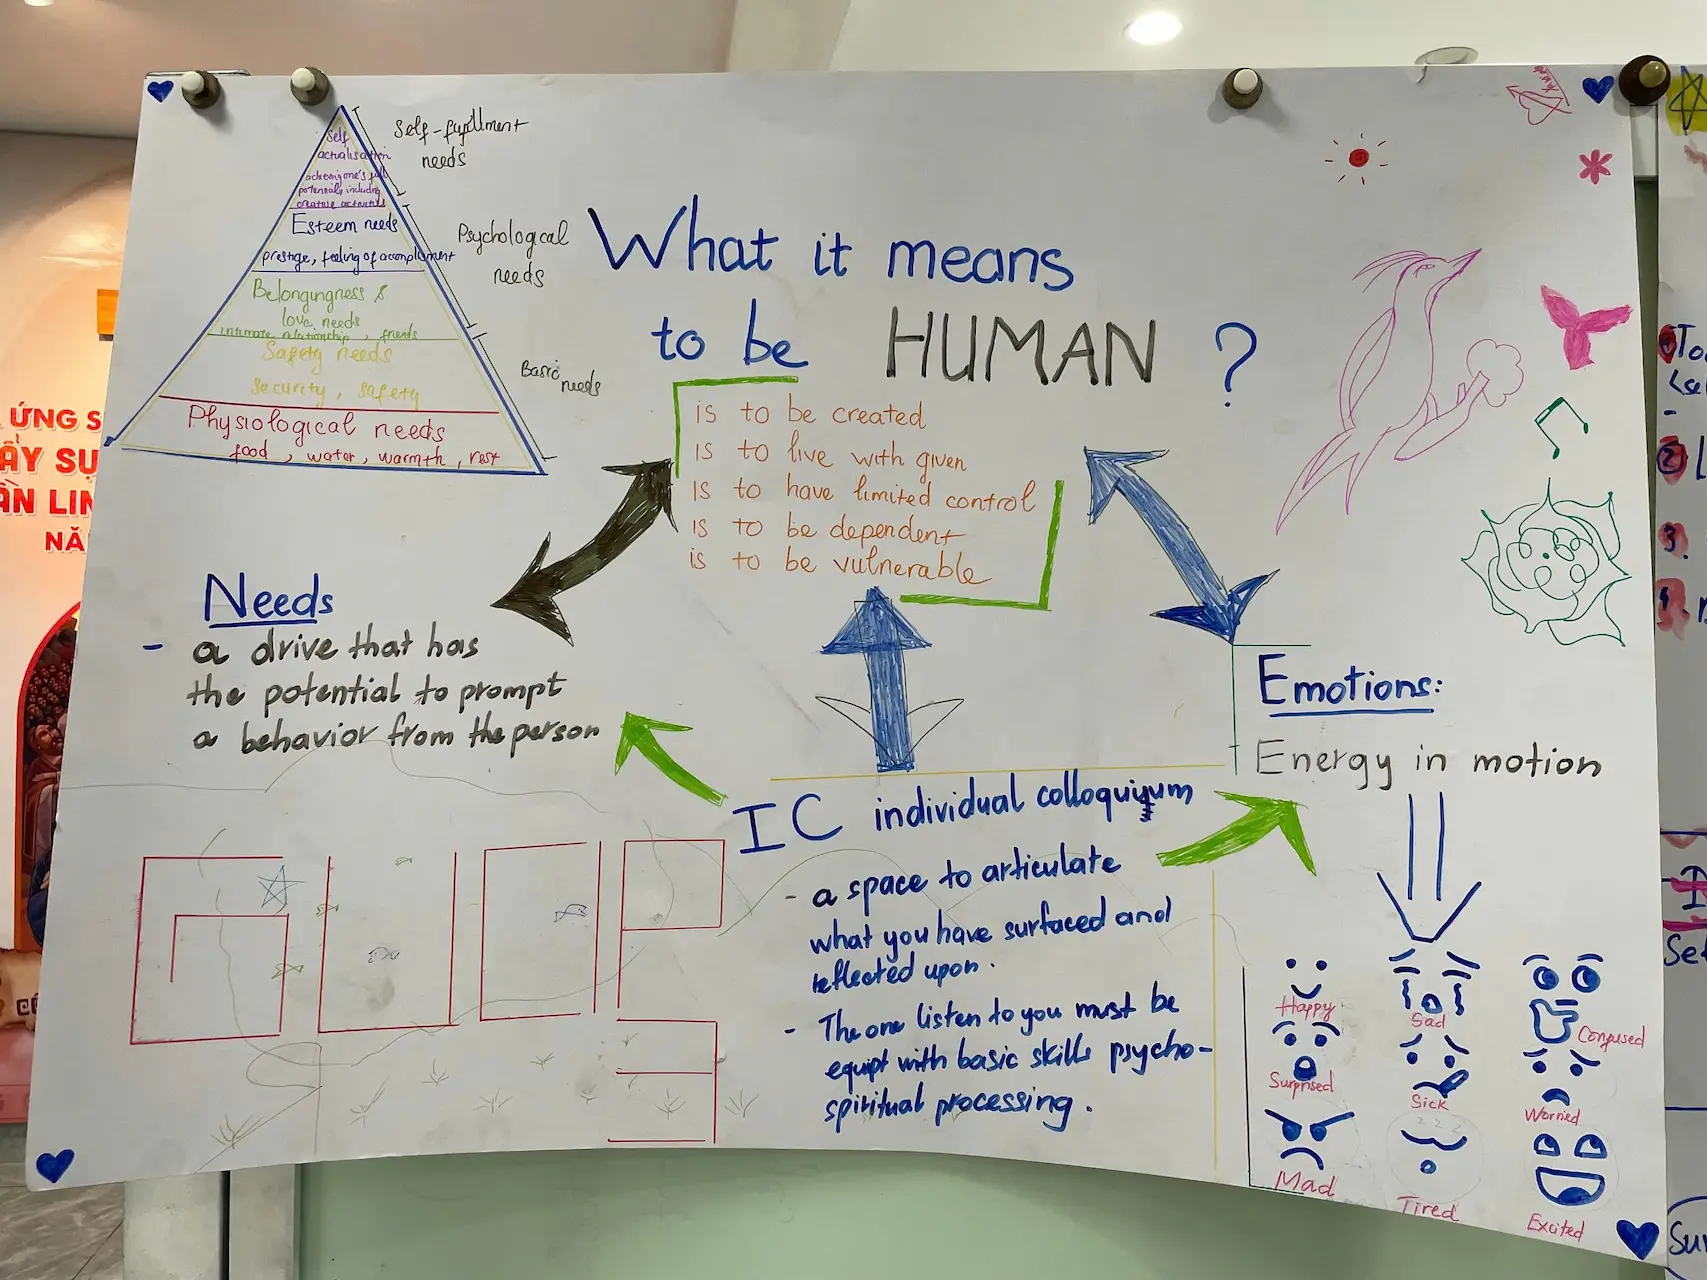 Self
actualisation
achieving one's full
potential, including
creative activities
Self-fufillment
needs
Esteem needs
prestige, feeling of accomplishment
Psychological
needs
Belongingness &
love needs
intimate relationship, friends
Safety needs
security, safety
Basic
needs
Physiological needs
food, water, warmth, rest
What it means
to be HUMAN ?
is to be created
is to live with given
is to have limited control
is to be dependent
is to be vulnerable
Needs
- a drive that has
the potential to prompt
a behavior from the person
Emotions:
Energy in motion
IC individual colloquyum
- a space to articulate
what you have surfaced and
reflected upon.
- The one listen to you must be
equipt with basic skills psycho-
spiritual processing.
Happy
Sad
Confused
Surprised
Sick
Worried
Mad
zzz
Tired
Excited
ỨNG S
ẨY SỰ
ẦN LIN
NĂ
2
3.
Set
Su